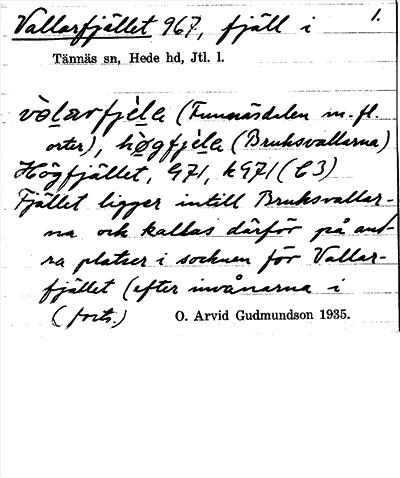 Vallarfjället 967, fjäll i 1.
Tännäs sn, Hede hd, Jtl. l.
vòlarfjèla (Funäsdalen m. fl.
orter), hògfjèla (Bruksvallarna)
Högfjället, G71, k G71 (C3)
Fjället ligger intill Bruksvallar-
na och kallas därför på and-
ra platser i socknen för Vallar-
fjället (efter invånarna i
(forts.) O. Arvid Gudmundson 1935.